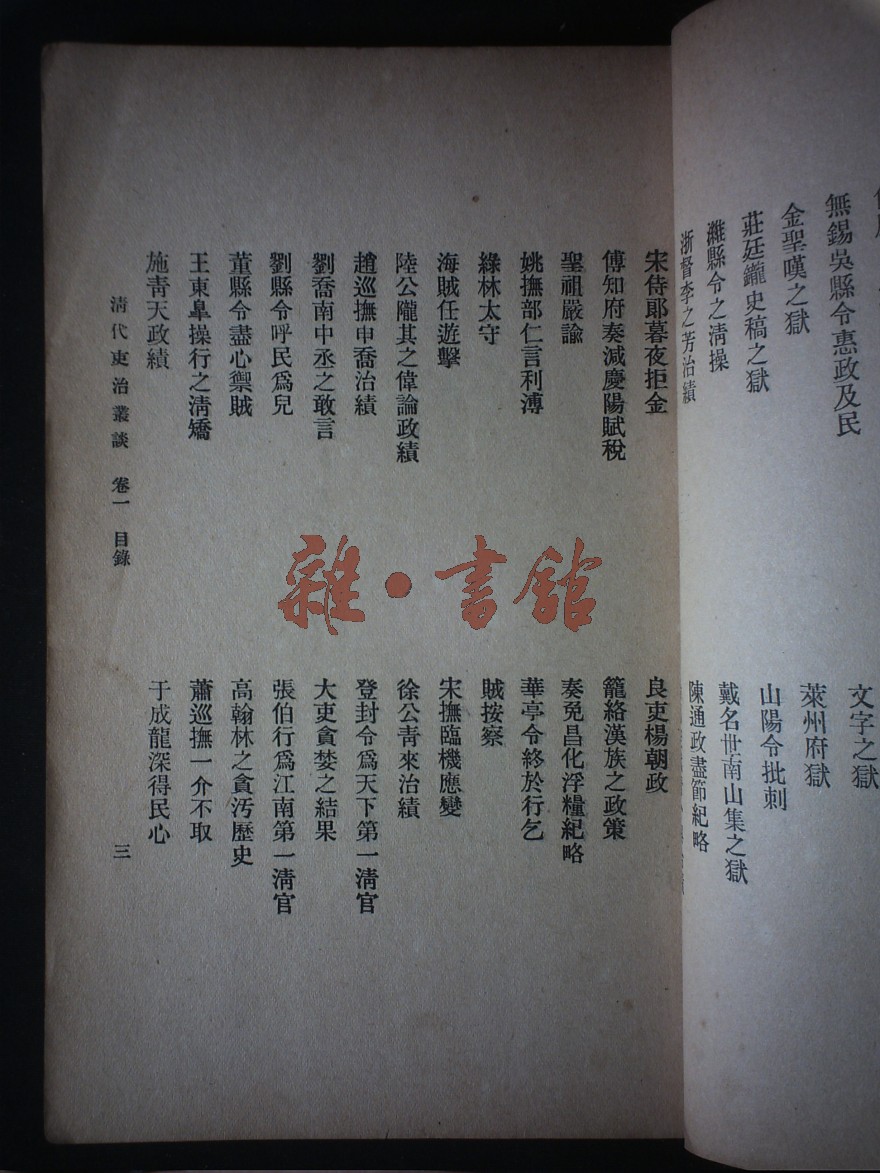 無錫吳縣令惠政及民
金聖嘆之獄
莊廷鑨史稿之獄
濰縣令之淸操
浙督李之芳治績
文字之獄
萊州府獄
山陽令批刺
戴名世南山集之獄
陳通政盡節紀略
宋侍郞暮夜拒金
傅知府奏減慶陽賦稅
聖祖嚴諭
姚撫部仁言利溥
綠林太守
海賊任遊擊
陸公隴其之偉論政績
趙巡撫申喬治績
劉喬南中丞之敢言
劉縣令呼民爲兒
董縣令盡心禦賊
王東臯操行之淸矯
施靑天政績
良吏楊朝政
籠絡漢族之政策
奏免昌化浮糧紀略
華亭令終於行乞
賊按察
宋撫臨機應變
徐公靑來治績
登封令爲天下第一淸官
大吏貪婪之結果
張伯行爲江南第一淸官
高翰林之貪汚歷史
蕭巡撫一介不取
于成龍深得民心
淸代吏治叢談 卷一 目錄
三
雜·書館